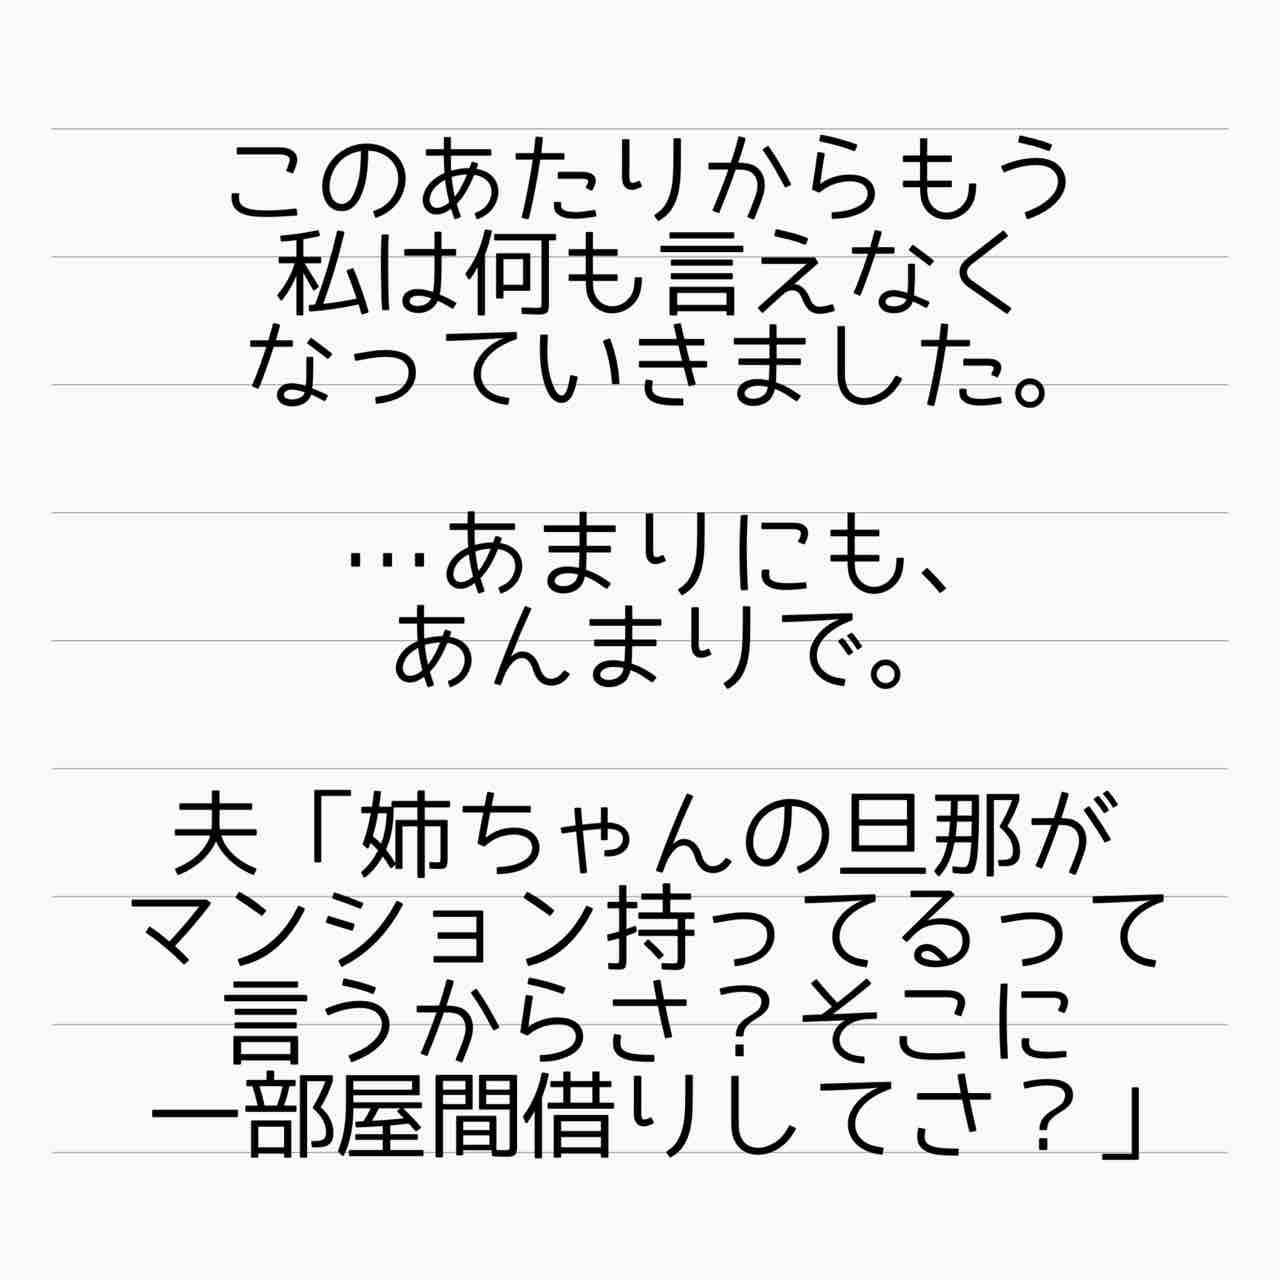 このあたりからもう
私は何も言えなく
なっていきました。
…あまりにも、
あんまりで。
夫「姉ちゃんの旦那が
マンション持ってるって
言うからさ？そこに
一部屋間借りしてさ？」